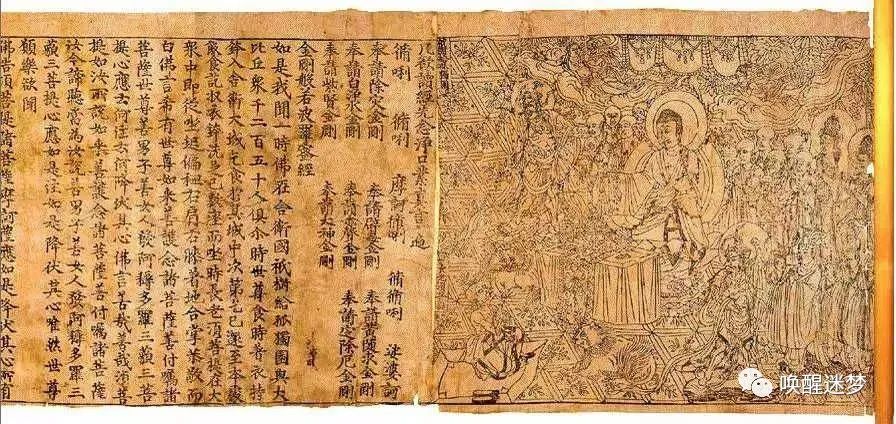 凡欲讀經先念淨口業真言一遍
脩唎 脩唎 摩訶脩唎 脩脩唎 娑婆訶
奉請除灾金剛 奉請辟毒金剛 奉請黃隨求金剛
奉請白淨水金剛 奉請赤聲金剛 奉請定除厄金剛
奉請紫賢金剛 奉請大神金剛
金剛般若波羅蜜經
如是我聞一時佛在舍衛國祇樹給孤獨園與大
比丘衆千二百五十人俱尒時世尊食時著衣持
鉢入舍衛大城乞食於其城中次第乞已還至本處
飯食訖收衣鉢洗足已敷座而坐時長老須菩提在大
衆中即從座起偏袒右肩右膝著地合掌恭敬而
白佛言希有世尊如來善護念諸菩薩善付囑諸
菩薩世尊善男子善女人發阿耨多羅三藐三菩
提心應云何住云何降伏其心佛言善哉善哉須菩
提如汝所說如來善護念諸菩薩善付囑諸菩薩
汝今諦聽當為汝說善男子善女人發阿耨多羅三
藐三菩提心應如是住如是降伏其心唯然世尊
願樂欲聞
佛告須菩提諸菩薩摩訶薩應如是降伏其心所有
唤醒迷梦